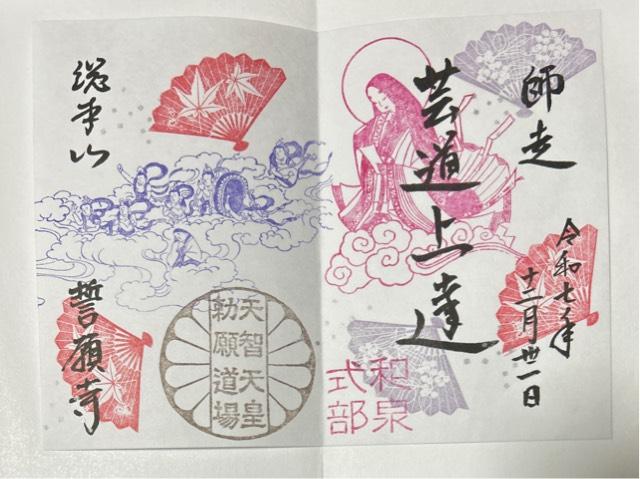 師走
令和七年
十二月卅一日
芸道上達
和泉
式部
天智天皇
勅願道場
総本山
誓願寺